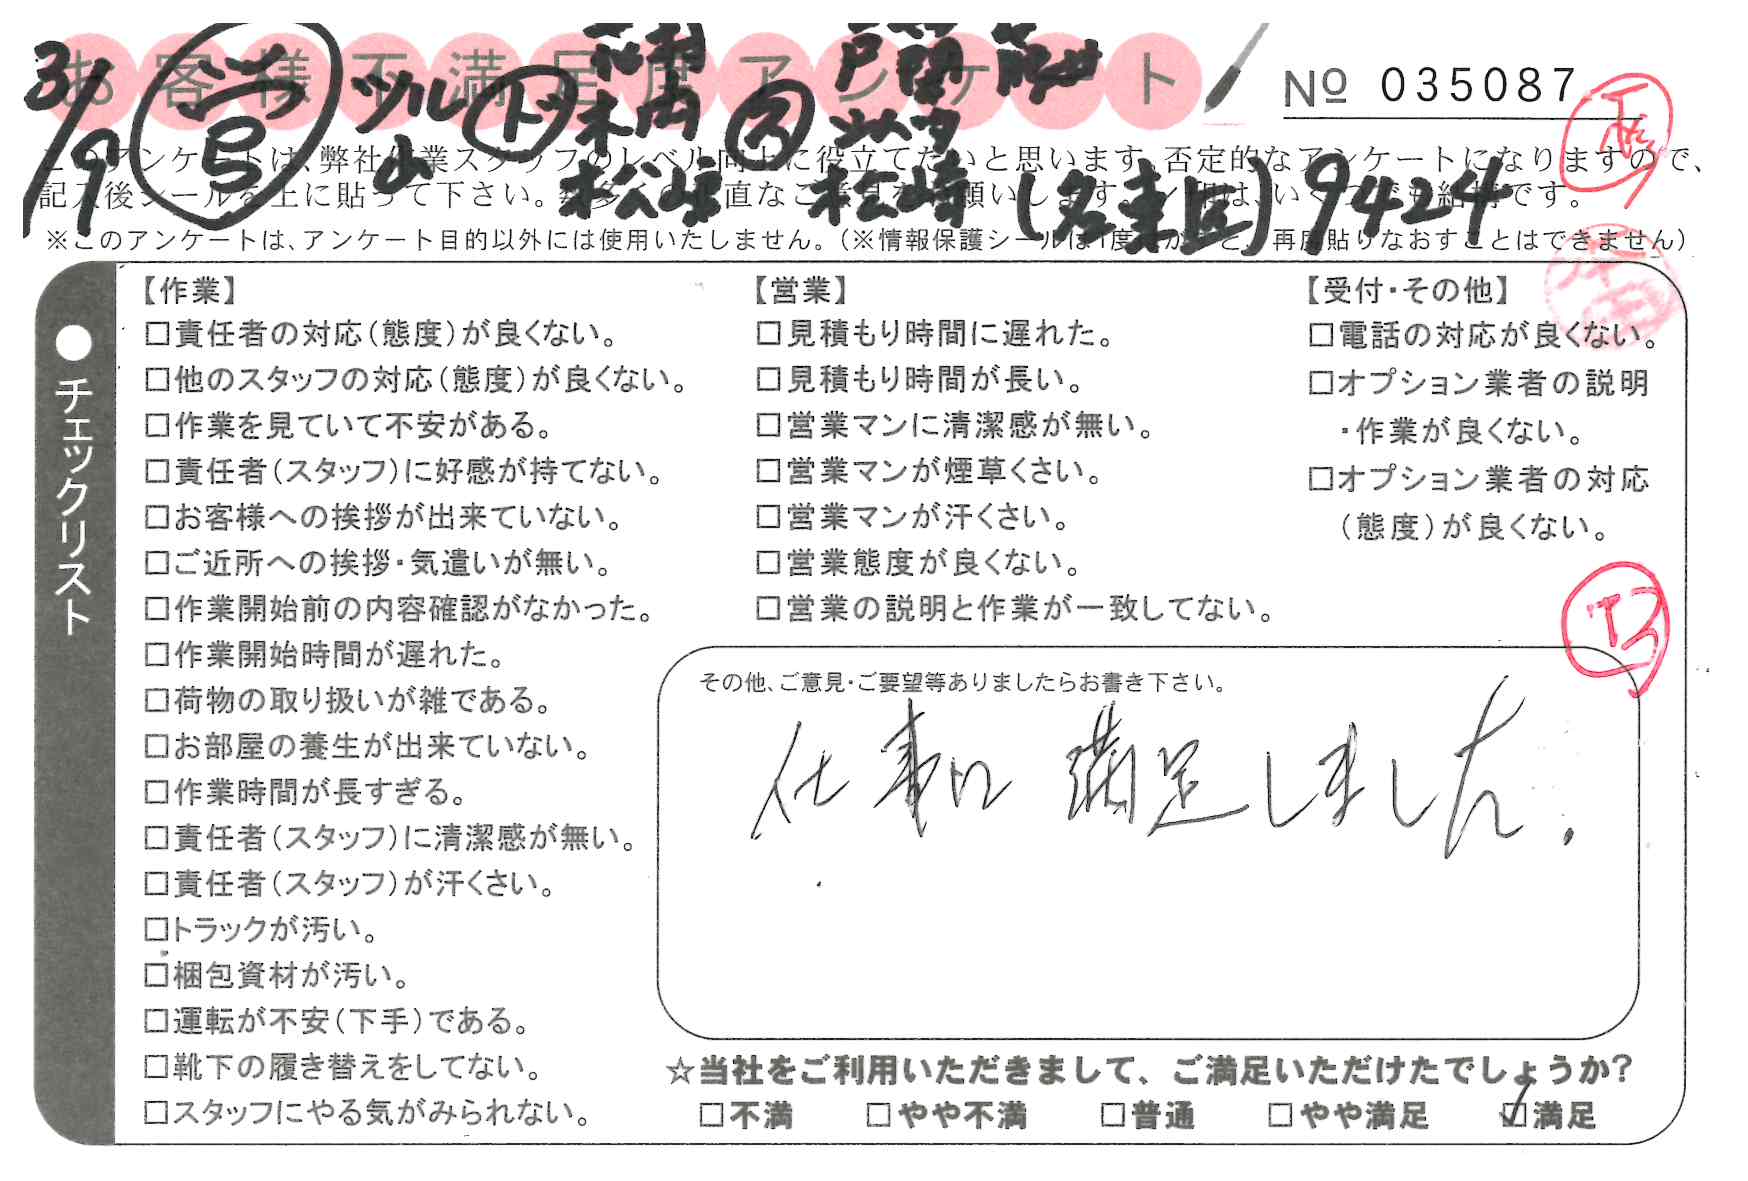 お客様不満足度アンケート
№ 035087
3/9 ツル ト (名東区) 9424
このアンケートは、弊社作業スタッフのレベル向上に役立てたいと思います。否定的なアンケートになりますので、
記入後シールを上に貼って下さい。
※このアンケートは、アンケート目的以外には使用いたしません。(※情報保護シールは1度はがすと、再度貼りなおすことはできません)
●チェックリスト
【作業】
□責任者の対応(態度)が良くない。
□他のスタッフの対応(態度)が良くない。
□作業を見ていて不安がある。
□責任者(スタッフ)に好感が持てない。
□お客様への挨拶が出来ていない。
□ご近所への挨拶・気遣いが無い。
□作業開始前の内容確認がなかった。
□作業開始時間が遅れた。
□荷物の取り扱いが雑である。
□お部屋の養生が出来ていない。
□作業時間が長すぎる。
□責任者(スタッフ)に清潔感が無い。
□責任者(スタッフ)が汗くさい。
□トラックが汚い。
□梱包資材が汚い。
□運転が不安(下手)である。
□靴下の履き替えをしてない。
□スタッフにやる気がみられない。
【営業】
□見積もり時間に遅れた。
□見積もり時間が長い。
□営業マンに清潔感が無い。
□営業マンが煙草くさい。
□営業マンが汗くさい。
□営業態度が良くない。
□営業の説明と作業が一致してない。
【受付・その他】
□電話の対応が良くない。
□オプション業者の説明
・作業が良くない。
□オプション業者の対応
(態度)が良くない。
その他、ご意見・ご要望等ありましたらお書き下さい。
仕事に満足しました.
☆当社をご利用いただきまして、ご満足いただけたでしょうか?
□不満 □やや不満 □普通 □やや満足 ☑満足